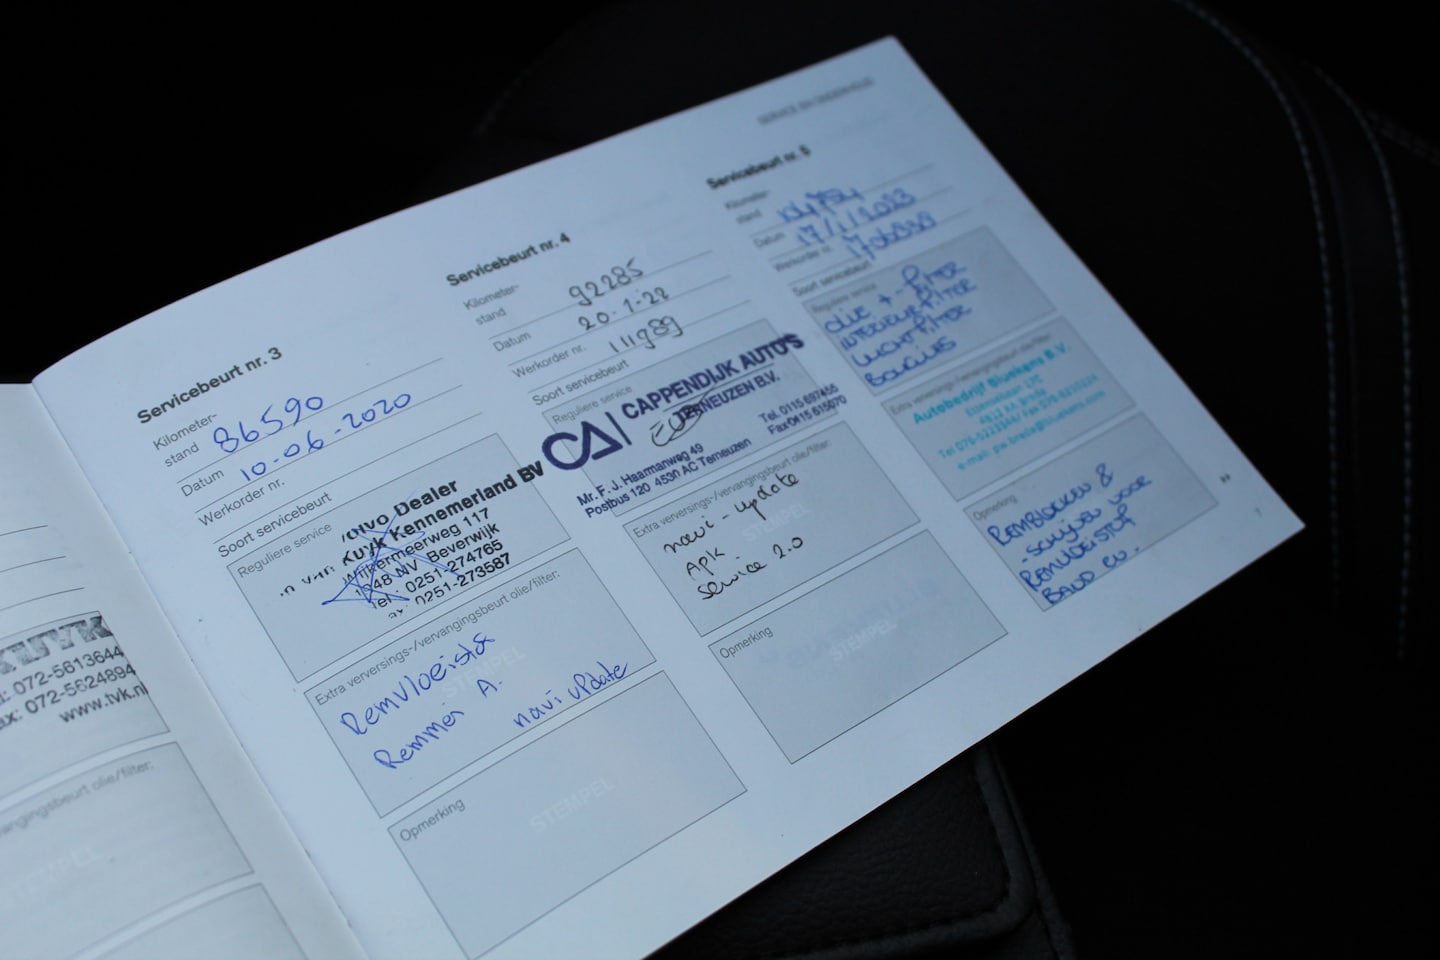 KUYK
072-5613644
072-5624894
www.tvk.nl
vervangingsbeurt olie/filter:
STEMPEL
Servicebeurt nr. 3
Kilometer-
stand 86590
Datum 10-06-2020
Werkorder nr.
Soort servicebeurt
Reguliere service
Dealer
Kuyk Kennemerland BV
Wijkermeerweg 117
1948 NV Beverwijk
Tel.: 0251-274765
0251-273587
Extra verversings-/vervangingsbeurt olie/filter:
STEMPEL
Remvloeistof
Remmen A.
navi update
Opmerking
STEMPEL
Servicebeurt nr. 4
Kilometer-
stand 92285
Datum 20-1-22
Werkorder nr. 111989
Soort servicebeurt
Reguliere service
CA CAPPENDIJK AUTO'S
TERNEUZEN B.V.
Mr. F. J. Haarmanweg 49
Postbus 120 4530 AC Terneuzen
Tel. 0115
Fax 0115
Extra verversings-/vervangingsbeurt olie/filter:
STEMPEL
navi-update
APK
Service 2.0
Opmerking
STEMPEL
SERVICE EN ONDERHOUD
Servicebeurt nr. 5
Kilometer-
stand
Datum 17/1/2023
Werkorder nr.
Soort servicebeurt
Reguliere service
OLIE + -FILTER
INTERIEURFILTER
LUCHTFILTER
BOUGIES
Extra verversings-/vervangingsbeurt olie/filter:
Autobedrijf Bluekens B.V.
Opmerking
REMBLOKKEN &
-SCHIJVEN VOOR
REMVLOEISTOF